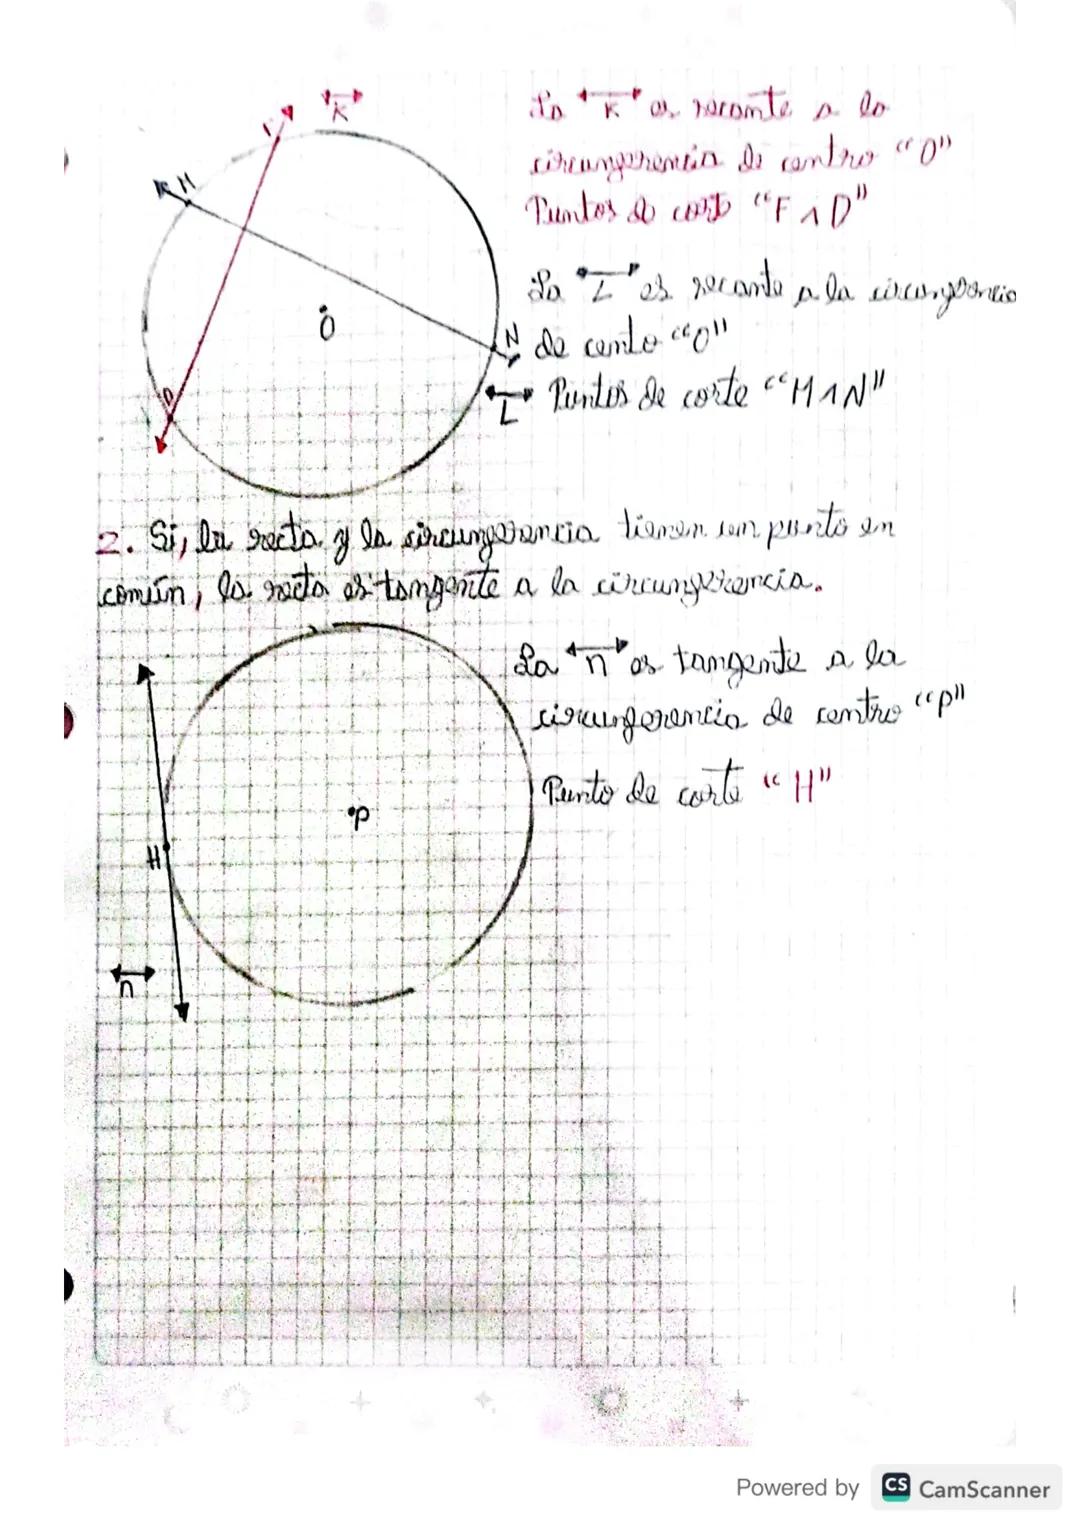 K
F
M
O
N
D
L
La "K" es secante a la
circunferencia de centro "O"
Puntos de corte "F ∧ D"
La "L" es secante a la circunferencia
de cento "O"
Puntos de corte "M ∧ N"
2. Si, la recta y la circunferencia tienen un punto en
común, la recta es tangente a la circunferencia.
La "n" es tangente a la
circunferencia de centro "p"
Punto de corte "H"
P
H
n
Powered by CS CamScanner